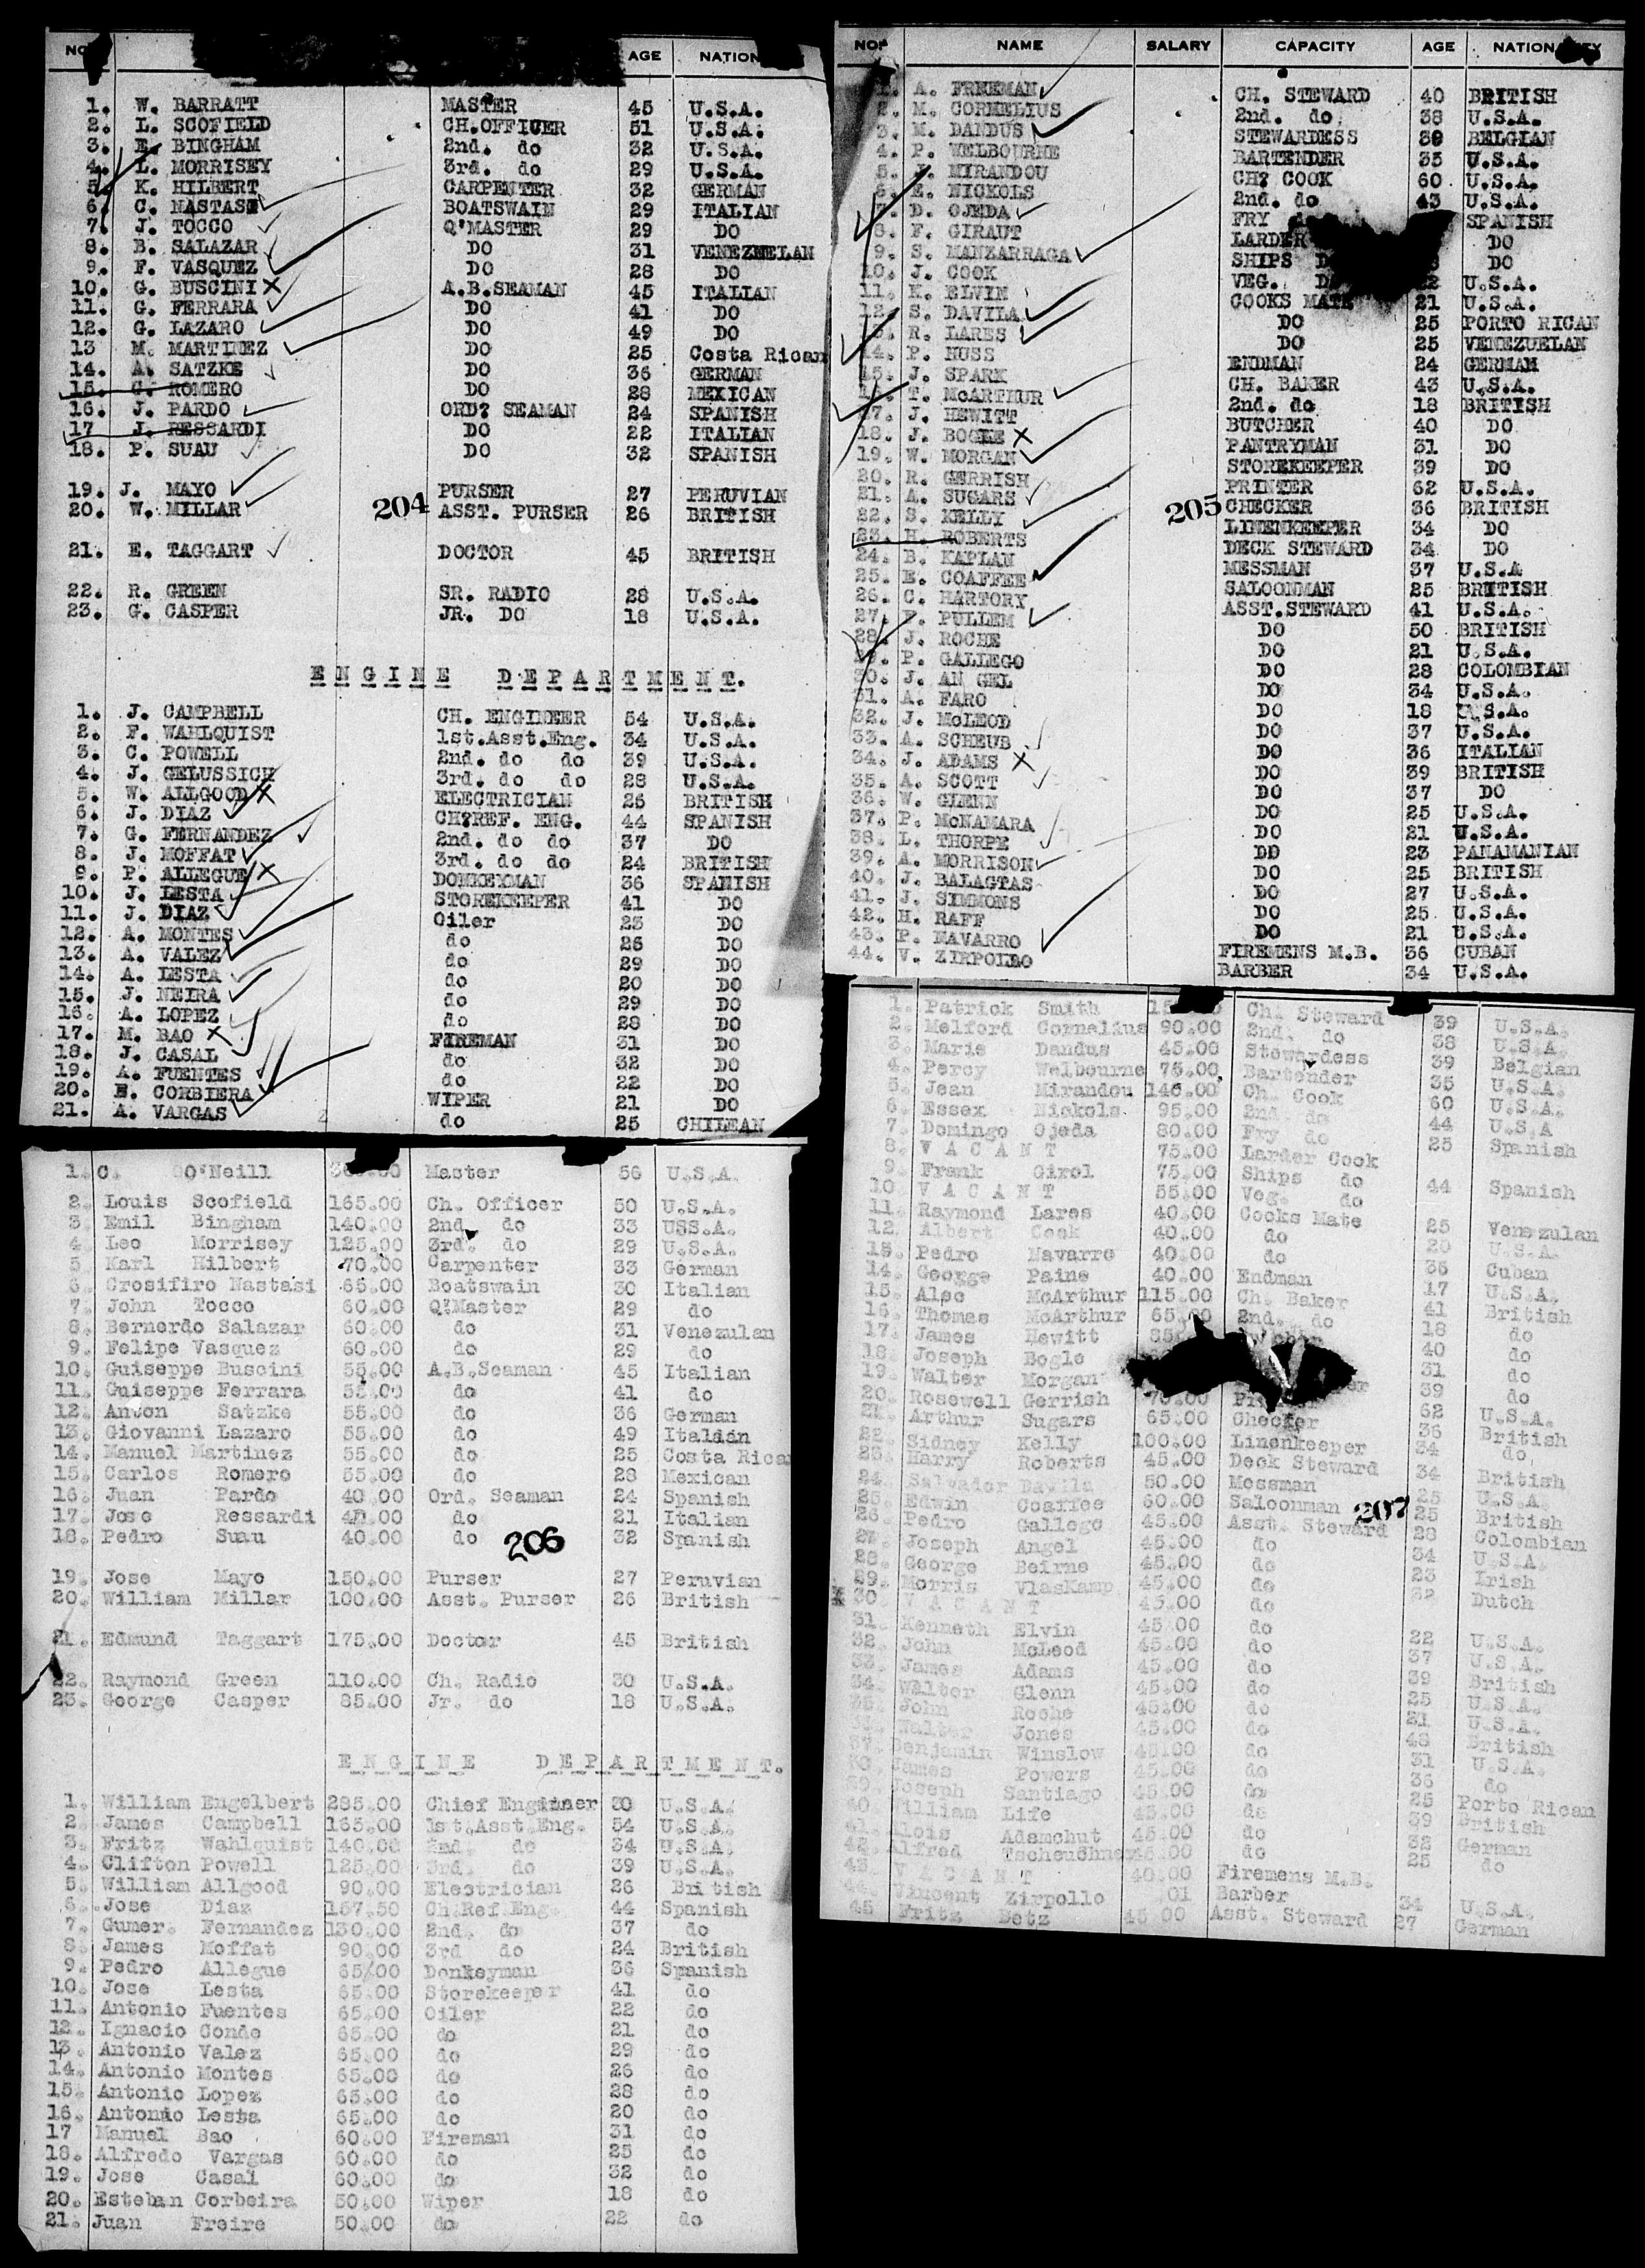 NO. AGE NATION
1. W. BARRATT MASTER 45 U.S.A.
2. L. SCOFIELD CH.OFFICER 51 U.S.A.
3. E. BINGHAM 2nd. do 32 U.S.A.
4. L. MORRISEY 3rd. do 29 U.S.A.
5. K. HILBERT CARPENTER 32 GERMAN
6. C. NASTASI BOATSWAIN 29 ITALIAN
7. J. TOCCO Q'MASTER 29 DO
8. B. SALAZAR DO 31 VENEZUELAN
9. F. VASQUEZ DO 28 DO
10. G. BUSCINI A.B.SEAMAN 45 ITALIAN
11. G. FERRARA DO 41 DO
12. G. LAZARO DO 49 DO
13 M. MARTINEZ DO 25 Costa Rican
14. A. SATZKE DO 36 GERMAN
15. C. ROMERO DO 28 MEXICAN
16. J. PARDO ORD? SEAMAN 24 SPANISH
17 J. RESSARDI DO 22 ITALIAN
18. P. SUAU DO 32 SPANISH
19. J. MAYO PURSER 27 PERUVIAN
20. W. MILLAR ASST. PURSER 26 BRITISH
204
21. E. TAGGART DOCTOR 45 BRITISH
22. R. GREEN SR. RADIO 28 U.S.A.
23. G. CASPER JR. DO 18 U.S.A.
ENGINE DEPARTMENT.
1. J. CAMPBELL CH. ENGINEER 54 U.S.A.
2. F. WAHLQUIST 1st.Asst.Eng. 34 U.S.A.
3. C. POWELL 2nd. do do 39 U.S.A.
4. J. GELUSSICH 3rd. do do 28 U.S.A.
5. W. ALLGOOD ELECTRICIAN 26 BRITISH
6. J. DIAZ CH?REF. ENG. 44 SPANISH
7. G. FERNANDEZ 2nd. do do 37 DO
8. J. MOFFAT 3rd. do do 24 BRITISH
9. P. ALLEGUE DONKEYMAN 36 SPANISH
10. J. LESTA STOREKEEPER 41 DO
11. J. DIAZ Oiler 23 DO
12. A. MONTES do 26 DO
13. A. VALEZ do 29 DO
14. A. LESTA do 20 DO
15. J. NEIRA do 29 DO
16. A. LOPEZ do 28 DO
17. M. BAO FIREMAN 31 DO
18. J. CASAL do 32 DO
19. A. FUENTES do 22 DO
20. E. CORBIERA WIPER 21 DO
21. A. VARGAS do 25 CHILEAN
NO. NAME SALARY CAPACITY AGE NATIONALITY
1. A. FREEMAN CH. STEWARD 40 BRITISH
2. M. CORNELIUS 2nd. do 38 U.S.A.
3. M. DANDUS STEWARDESS 39 BELGIAN
4. P. WELBOURNE BARTENDER 35 U.S.A.
5. J. MIRANDOU CH? COOK 60 U.S.A.
6. E. NICKOLS 2nd. do 43 U.S.A.
7. D. OJEDA FRY SPANISH
8. F. GIRAUT LARDER DO
9. S. MANZARRAGA SHIPS DO
10. J. COOK VEG. U.S.A.
11. K. ELVIN COOKS MATE 21 U.S.A.
12. S. DAVILA DO 25 PORTO RICAN
13. R. LARES DO 25 VENEZUELAN
14. P. NUSS ENDMAN 24 GERMAN
15. J. SPARK CH. BAKER 43 U.S.A.
16. T. McARTHUR 2nd. do 18 BRITISH
17. J. HEWITT BUTCHER 40 DO
18. J. BOGLE PANTRYMAN 31 DO
19. W. MORGAN STOREKEEPER 39 DO
20. R. GERRISH PRINTER 62 U.S.A.
21. A. SUGARS CHECKER 36 BRITISH
22. S. KELLY LINENKEEPER 34 DO
205
23. H. ROBERTS DECK STEWARD 34 DO
24. B. KAPLAN MESSMAN 37 U.S.A
25. E. COAFFEE SALOONMAN 25 BRITISH
26. C. HARTORY ASST.STEWARD 41 U.S.A.
27. F. PULLEM DO 50 BRITISH
28. J. ROCHE DO 21 U.S.A.
29. P. GALLEGO DO 28 COLOMBIAN
30. J. AN GEL DO 34 U.S.A.
31. A. FARO DO 18 U.S.A.
32. J. McLEOD DO 37 U.S.A.
33. A. SCHEUB DO 36 ITALIAN
34. J. ADAMS DO 39 BRITISH
35. A. SCOTT DO 37 DO
36. W. GLENN DO 25 U.S.A.
37. P. McNAMARA DO 21 U.S.A.
38. L. THORPE DO 23 PANAMANIAN
39. A. MORRISON DO 25 BRITISH
40. J. BALAGTAS DO 27 U.S.A.
41. J. SIMMONS DO 25 U.S.A.
42. H. RAFF DO 21 U.S.A.
43. P. NAVARRO FIREMENS M.B. 36 CUBAN
44. V. ZIRPOLLO BARBER 34 U.S.A.
1. C. O'Neill Master 56 U.S.A.
2. Louis Scofield 165.00 Ch. Officer 50 U.S.A.
3. Emil Bingham 140.00 2nd. do 33 USS.A.
4. Leo Morrisey 125.00 3rd. do 29 U.S.A.
5. Karl Hilbert 70.00 Carpenter 33 German
6. Crosifiro Nastasi 65.00 Boatswain 30 Italian
7. John Tocco 60.00 Q'Master 29 do
8. Bernerdo Salazar 60.00 do 31 Venezulan
9. Felipe Vasquez 60.00 do 29 do
10. Guiseppe Buscini 55.00 A.B.Seaman 45 Italian
11. Guiseppe Ferrara 55.00 do 41 do
12. Anton Satzke 55.00 do 36 German
13. Giovanni Lazaro 55.00 do 49 Italian
14. Manuel Martinez 55.00 do 25 Costa Rica
15. Carlos Romero 55.00 do 28 Mexican
16. Juan Pardo 40.00 Ord. Seaman 24 Spanish
17. Jose Ressardi 40.00 do 21 Italian
18. Pedro Suau 40.00 do 32 Spanish
206
19. Jose Mayo 150.00 Purser 27 Peruvian
20. William Millar 100.00 Asst. Purser 26 British
21. Edmund Taggart 175.00 Doctor 45 British
22. Raymond Green 110.00 Ch. Radio 30 U.S.A.
23. George Casper 85.00 Jr. do 18 U.S.A.
ENGINE DEPARTMENT.
1. William Engelbert 285.00 Chief Engineer 30 U.S.A.
2. James Campbell 165.00 1st.Asst.Eng. 54 U.S.A.
3. Fritz Wahlquist 140.00 2nd. do 34 U.S.A.
4. Clifton Powell 125.00 3rd. do 39 U.S.A.
5. William Allgood 90.00 Electrician 26 British
6. Jose Diaz 157.50 Ch.Ref.Eng. 44 Spanish
7. Gumer. Fernandez 130.00 2nd. do 37 do
8. James Moffat 90.00 3rd do 24 British
9. Pedro Allegue 65/00 Donkeyman 36 Spanish
10. Jose Lesta 65.00 Storekeeper 41 do
11. Antonio Fuentes 65.00 Oiler 22 do
12. Ignacio Conde 65.00 do 21 do
13. Antonio Valez 65.00 do 29 do
14. Antonio Montes 65.00 do 26 do
15. Antonio Lopez 65.00 do 28 do
16. Antonio Lesta 65.00 do 20 do
17 Manuel Bao 60.00 Fireman 31 do
18. Alfredo Vargas 60.00 do 25 do
19. Jose Casal 60.00 do 32 do
20. Esteban Corbeira 50.00 Wiper 18 do
21. Juan Freire 50.00 do 22 do
1. Patrick Smith Ch. Steward 39 U.S.A.
2. Melford Cornalius 90.00 2nd. do 38 U.S.A.
3. Marie Dandus 45.00 Stewardess 39 Belgian
4. Percy Welbourne 75.00 Bartender 35 U.S.A.
5. Jean Mirandou 140.00 Ch. Cook 60 U.S.A.
6. Essex Nickols 95.00 2nd. do 44 U.S.A
7. Domingo Ojeda 80.00 Fry do 25 Spanish
8. VACANT 75.00 Larder Cook
9. Frank Girol 75.00 Ships do 44 Spanish
10 VACANT 55.00 Veg. do
11. Raymond Lares 40.00 Cooks Mate 25 Venezulan
12. Albert Cook 40.00 do 20 U.S.A.
13. Pedro Navarro 40.00 do 36 Cuban
14. George Paine 40.00 Endman 17 U.S.A.
15. Alec McArthur 115.00 Ch. Baker 41 British
16. Thomas McArthur 65.00 2nd. do 18 do
17. James Hewitt 40 do
18. Joseph Bogle 31 do
19. Walter Morgan 39 do
20. Rosewell Gerrish 62 U.S.A.
21. Arthur Sugars 65.00 Checker 36 British
22. Sidney Kelly 100.00 Linenkeeper 34 do
23. Harry Roberts 45.00 Deck Steward 34 British
24. Salvador Davila 50.00 Messman 25 U.S.A.
25. Edwin Coaffee 60.00 Saloonman 25 British
207
26. Pedro Gallego 45.00 Asst. Steward 28 Colombian
27. Joseph Angel 45.00 do 34 U.S.A.
28. George Beirne 45.00 do 23 Irish
29. Morris VlasKamp 45.00 do 32 Dutch
30. VACANT 45.00 do
31. Kenneth Elvin 45.00 do 22 U.S.A.
32. John McLeod 45.00 do 37 U.S.A.
33. James Adams 45.00 do 39 British
34. Walter Glenn 45.00 do 25 U.S.A.
35. John Roche 45.00 do 21 U.S.A.
36. Walter Jones 45.00 do 48 British
37. Benjamin Winslow 45.00 do 31 U.S.A.
38. James Powers 45.00 do 36 do
39. Joseph Santiago 45.00 do 25 Porto Rican
40. William Life 45.00 do 39 British
41. Alois Adamchut 45.00 do 32 German
42. Alfred Tscheuchner 45.00 do 25 do
43. VACANT 40.00 Firemens M.B.
44. Vincent Zirpollo .01 Barber 34 U.S.A.
45 Fritz Betz 45 00 Asst. Steward 27 German